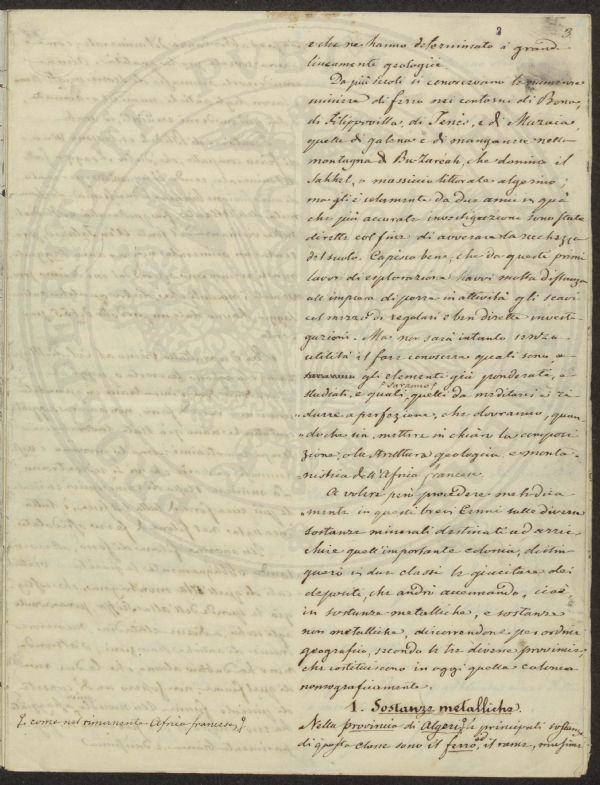 3.
e che ne hanno determinato i grandi
lineamente geologici
Da più secoli si conoscevano le numerose
miniere di ferro nei contorni di Bona,
di Filippovilla, di Tenès, e di Muzaia,
quelle di galena e di manganese nella
montagna di Bu-Zareah, che domina il
Sahhel, o massiccio littorale algerino;
ma gli è solamente da due anni in quà
che più accurate investigazione sono state
dirette col fine di avverare la ricchezza
del suolo. Capisco bene, che da questi primi
lavori di esplorazione havvi molta distanza
all'impresa di porre in attività gli scavi
col mezzo di regolari e ben dirette investi-
gazioni. Ma non sarà intanto senza
utilità il fare conoscere quali sono
gli elementi già ponderati, e
studiati, e quali saranno quelli da meditarsi e ri-
durre a perfezione, che dovranno, quan-
do che sia, mettere in chiaro la composi-
zione, e la struttura geologica e monta-
nistica dell'Africa francese.
A volere però procedere metodica-
mente in questi brevi Cenni sulle diverse
sostanze minerali destinati ad arric-
chire quell'importante colonia, distin-
guerò in due classi le giaciture dei
depositi, che andrò accennando, cioè
in sostanze metalliche, e sostanze
non metalliche, discorrendone per ordine
geografico, secondo le tre diverse provincie,
che costituiscono in oggi quella colonia
1. Sostanze metalliche.
Nella provincia di Algeri, i principali sostanze
di questa classe sono il ferro, ed il rame, massime
come nel rimanente Africa francese,